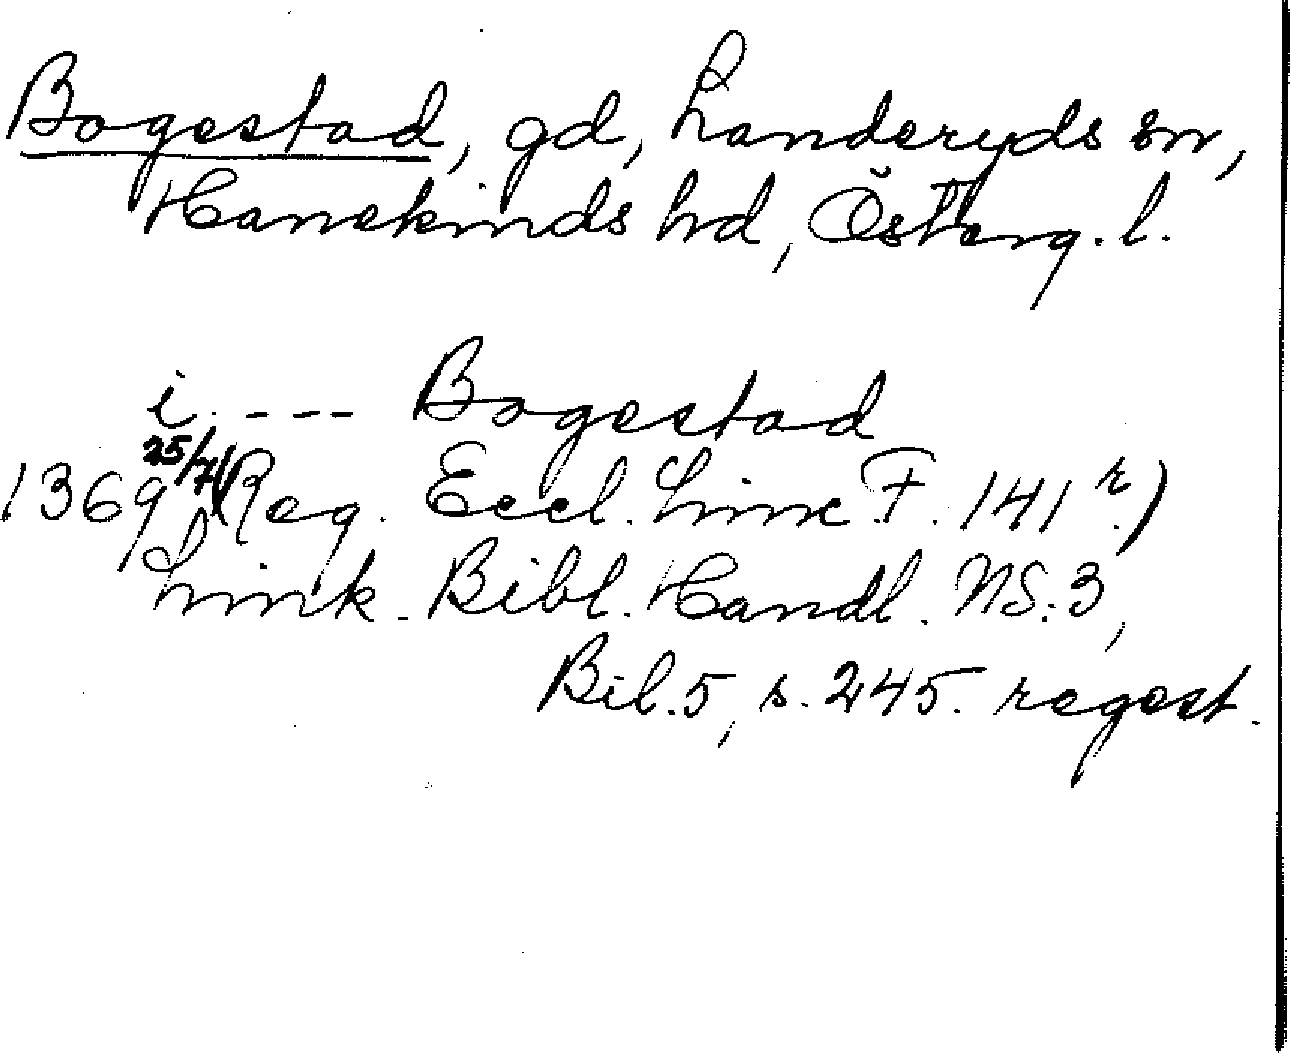 Bogestad, gd, Landeryds sn,
Hanekinds hd, Österg. l.
i. --- Bogestad
1369 25/7 (Reg. Eccl. Linc. F. 141 r.)
Link. Bibl. Handl. NS. 3,
Bil. 5, s. 245. regest.